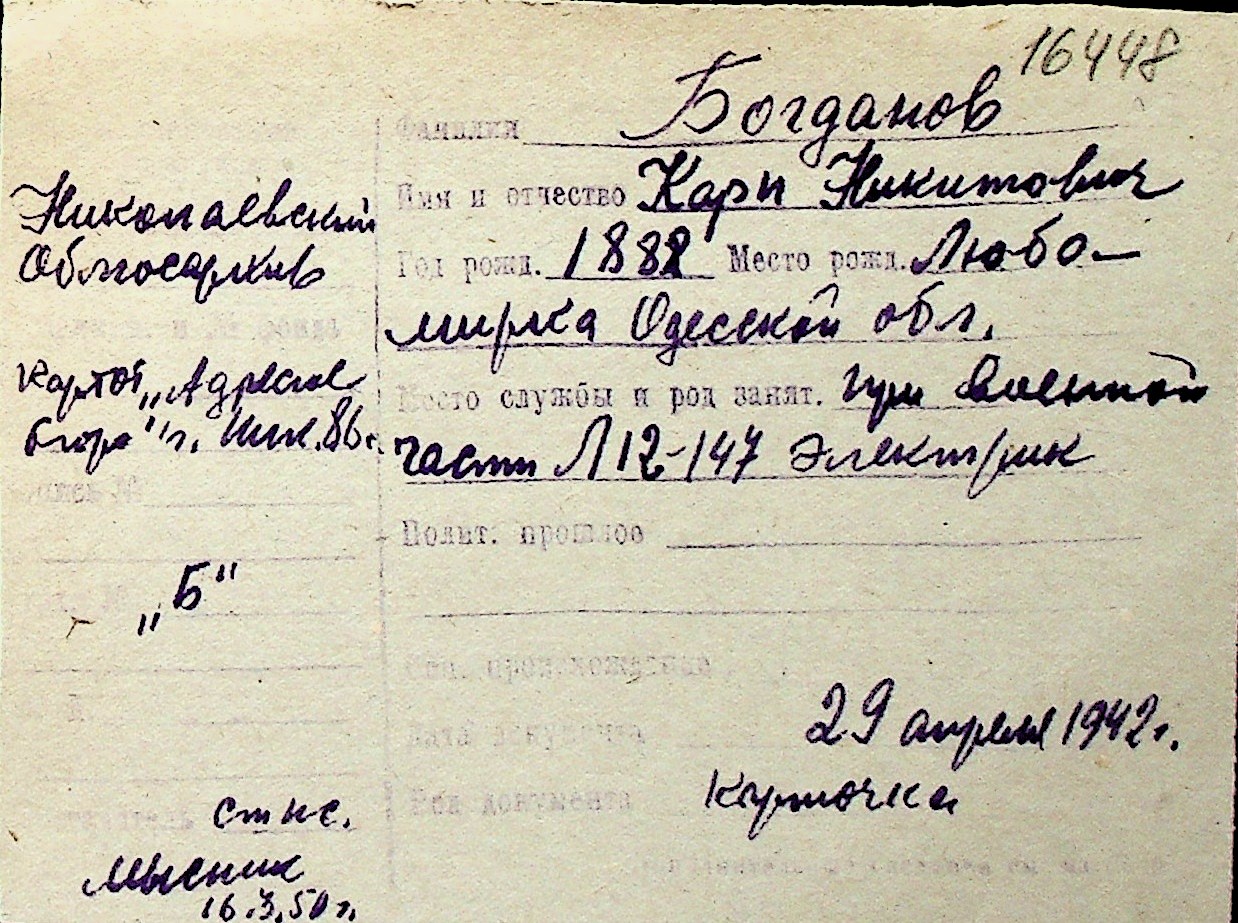 16448
Фамилия Богданов
Имя и отчество Карп Никитович
Год рожд. 1888 Место рожд. Любо-
мирка Одесской обл.
Место службы и род занят. при военной
части Л12-147 электрик
Полит. прошлое
Соц. происхождение
Дата документа 29 апреля 1942 г.
Вид документа Карточка
Николаевский
Облгосархив
Картот. „Адресное
бюро" г. Ник. 86
„Б"
Мысник
16.3.50 г.